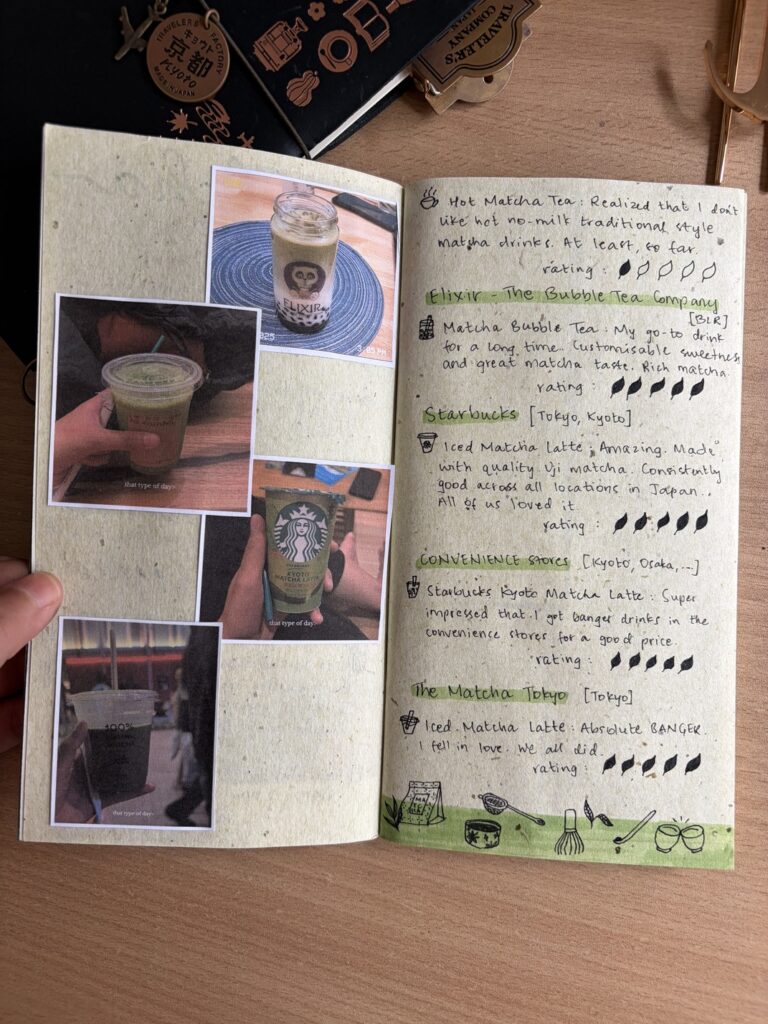 TRAVELER'S FACTORY
キョウト
京都
Kyoto
MADE IN JAPAN
TRAVELER'S
COMPANY
JAPAN
ELIXIR
2025
3:05 PM
that type of day~
STARBUCKS
KYOTO
MATCHA LATTE
that type of day~
100%
that type of day~
Hot Matcha Tea : Realized that I don't
like hot no-milk traditional style
matcha drinks. At least, so far.
rating :
Elixir - The Bubble Tea Company
[BLR]
Matcha Bubble Tea : My go-to drink
for a long time. Customisable sweetness
and great matcha taste. Rich matcha.
rating :
Starbucks [Tokyo, Kyoto]
Iced Matcha Latte : Amazing. Made
with quality Uji matcha. Consistently
good across all locations in Japan.
All of us loved it
rating :
CONVENIENCE STORES [Kyoto, Osaka, ...]
Starbucks Kyoto Matcha Latte : Super
impressed that I got banger drinks in the
convenience stores for a good price.
rating :
The Matcha Tokyo [Tokyo]
Iced Matcha Latte : Absolute BANGER.
I fell in love. We all did.
rating :